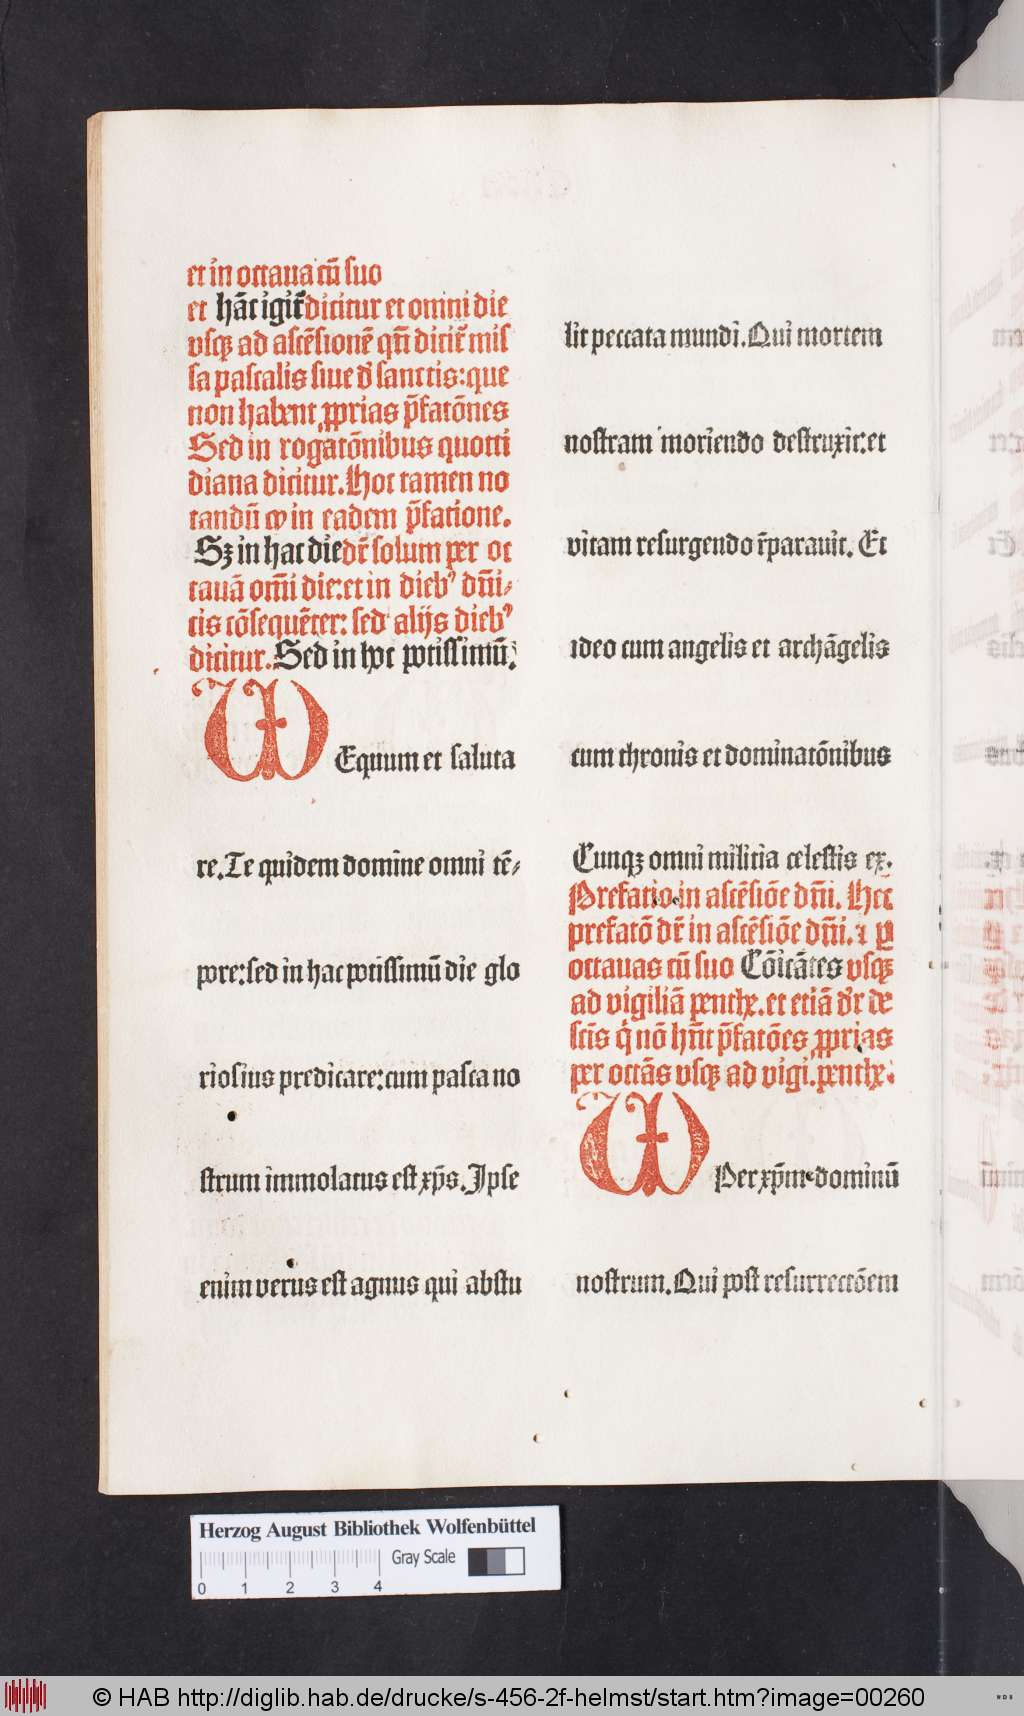 et in octaua cū suo
et hāc igit̄ dicitur et omni die
vsqꝫ ad ascēsionē qn̄ dicit̄ mis
sa pascalis siue d̄ sanctis: que
non habent ꝓprias p̄fatōnes
Sed in rogatōnibus quotti
diana dicitur. Hoc tamen no
tandū ꝙ in eadem p̄fatione.
Sꝫ in hac die dr̄ solum per oc
tauā om̄i die: et in diebꝰ dn̄i-
cis cōsequēter: sed alijs diebꝰ
dicitur. Sed in hoc potissimū.
VEqnum et saluta
re. Te quidem domine omni tē-
pore: sed in hac potissimū die glo
riosius predicare: cum pasca no
strum immolatus est xp̄s. Ipse
enim verus est agnus qui abstu
lit peccata mundi. Qui mortem
nostram moriendo destruxit: et
vitam resurgendo r̄parauit. Et
ideo cum angelis et archāgelis
cum thronis et dominatōnibus
Cunqꝫ omni militia celestis ex.
Prefatio in ascēsiōe dn̄i. Hec
prefatō dr̄ in ascēsiōe dn̄i. ⁊ ꝑ
octauas cū suo Cōicātes vsqꝫ
ad vigiliā penthe. et etiā dr̄ de
sctīs q̇ nō hn̄t p̄fatōes ꝓprias
per octās vsqꝫ ad vigi. penthe.
VPer xp̄m dominū
nostrum. Qui post resurrectōem
Herzog August Bibliothek Wolfenbüttel
Gray Scale
0 1 2 3 4
© HAB http://diglib.hab.de/drucke/s-456-2f-helmst/start.htm?image=00260